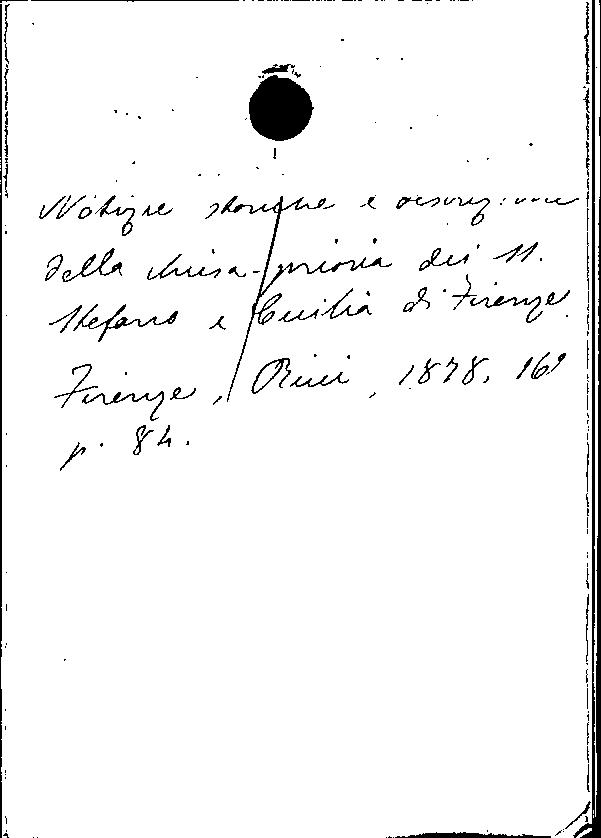 Notizie storiche e descrizione
della chiesa-prioria dei SS.
Stefano e Cecilia di Firenze.
Firenze, Ricci, 1878, 16º
p. 84.